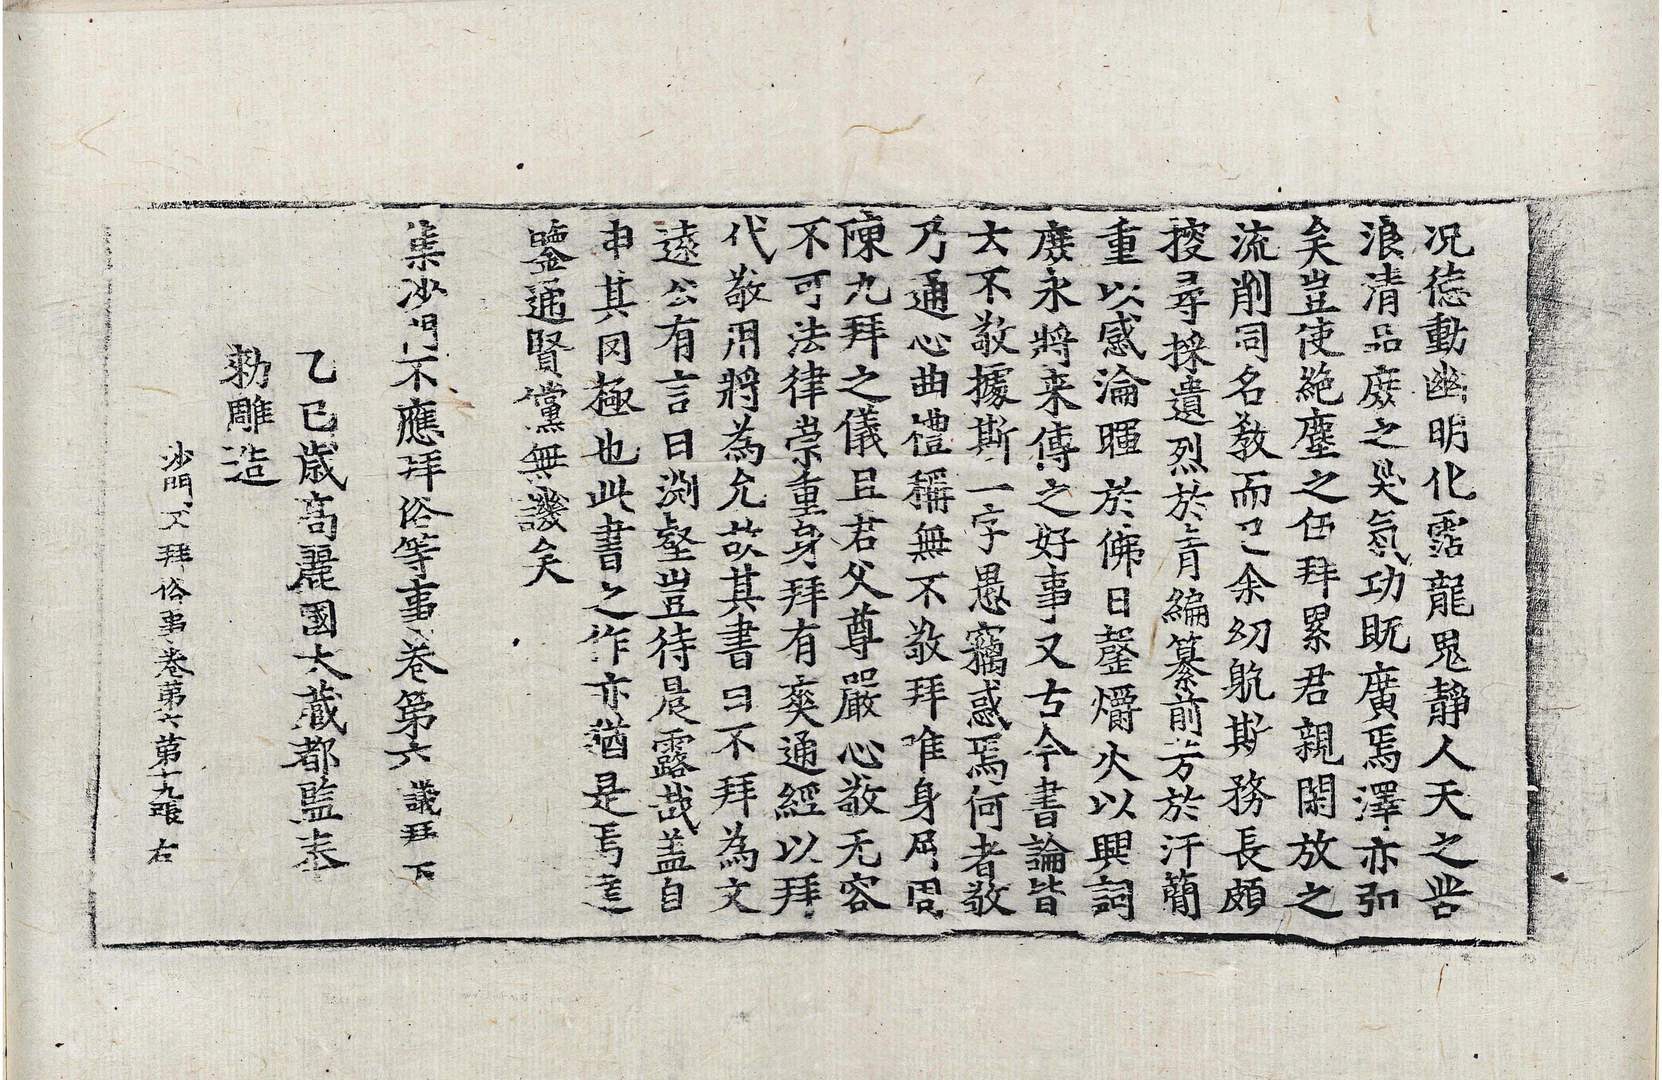 况德動幽明化霑龍鬼靜人天之喾
浪清品庶之㚖氛功旣廣焉澤亦弘
矣豈使絶塵之伍拜累君親閑放之
流削同名教而已余幼躭斯務長頗
搜尋採遺烈於青編纂前芳於汗簡
重以感淪暉於佛日罄爝火以興詞
庶永將来傳之好事又古今書論皆
云不敬據斯一字愚竊惑焉何者敬
乃通心曲禮稱無不敬拜唯身屈周
陳九拜之儀且君父尊嚴心敬无容
不可法律崇重身拜有爽通經以拜
代敬用將為允故其書曰不拜為文
遠公有言曰淵壑豈待晨露㦲盖自
申其罔極也此書之作亦猶是焉達
鑒通賢黨無譏矣
集沙門不應拜俗等事卷第六 議拜下
乙巳歳高麗國大藏都監奉
勅雕造
沙門不拜俗事卷第六 第十九張 右